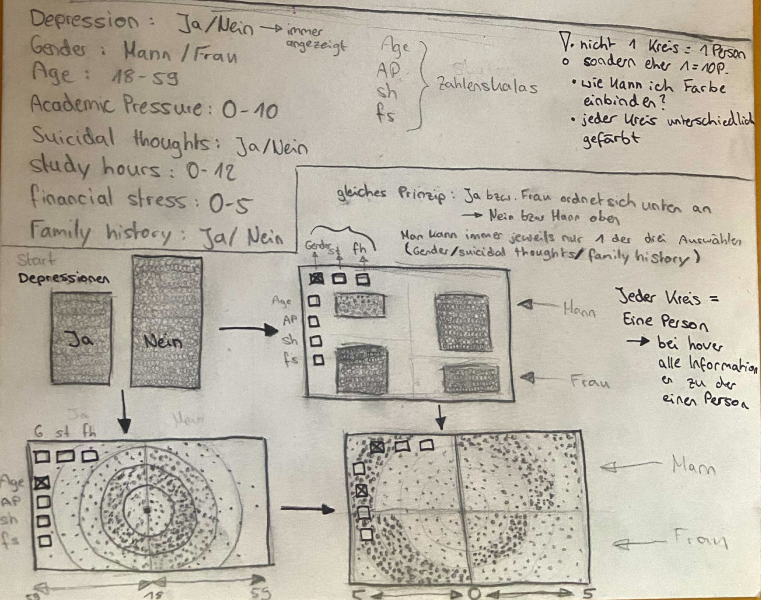 Depression: Ja/Nein → immer angezeigt
Gender: Mann/Frau
Age: 18-59
Academic Pressure: 0-10
Suicidal thoughts: Ja/Nein
study hours: 0-12
financial stress: 0-5
Family history: Ja/Nein
Age
AP
sh
fs
Zahlenskalas
nicht 1 Kreis = 1 Person
sondern eher 1=10P.
• wie kann ich Farbe
einbinden?
• jeder Kreis unterschiedlich
gefärbt
gleiches Prinzip: Ja bzw. Frau ordnet sich unten an
→ Nein bzw Mann oben
Man kann immer jeweils nur 1 der drei Auswählen
(Gender/suicidal thoughts/family history)
Start
Depressionen
Ja
Nein
Gender st fh
Age
AP
sh
fs
Mann
Frau
Jeder Kreis =
Eine Person
→ bei hover
alle Information
en zu der
einen Person
Ja
Nein
G st fh
Age
AP
sh
fs
59 18 59
Mann
Frau
5 0 5